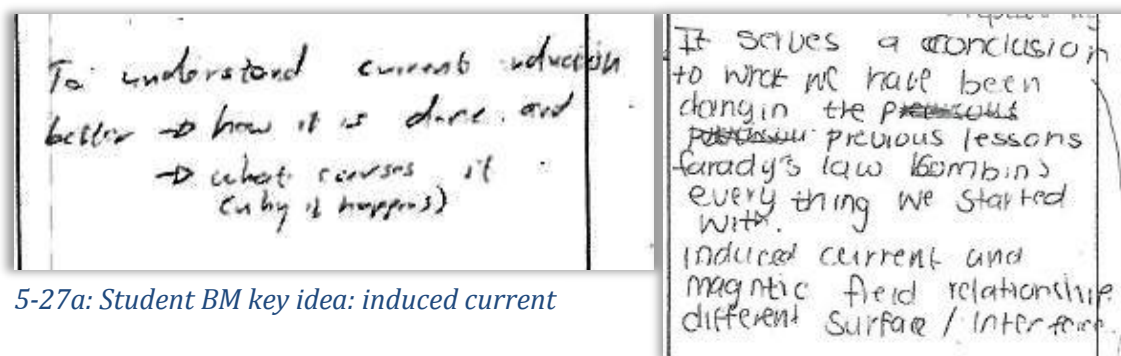 To understand current induction
better → how it is done, and
→ what causes it
(why it happens)
5-27a: Student BM key idea: induced current
It serves a conclusion
to what we have been
doing in the
previous lessons
farady's law combins
every thing we started
with.
induced current and
magntic field relationship
different surface /